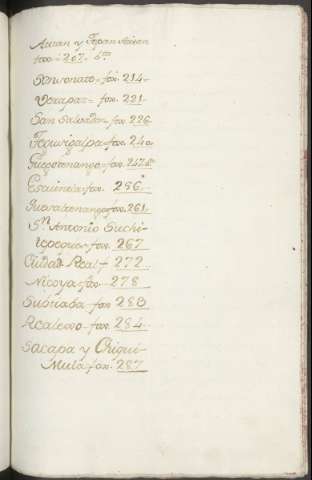 Atitan y Tecpanatitan
fox. 207. bta
Sonsonate - fox. 214 -
Verapaz - fox. 221.
San Salvador - fox. 226
Teguzigalpa - fox. 240
Guegotenango - fox. 247. bta
Escuintla - fox. 256
Guazatenango fox. 261.
Sn. Antonio Suchi-
tepeques - fox. 267
Ciudad Real f 272
Nicoya - fox. - 278
Subtiaba - fox. 280
Realexo - fox. 284 -
Sacapa y Chiqui-
mula - fox. 287